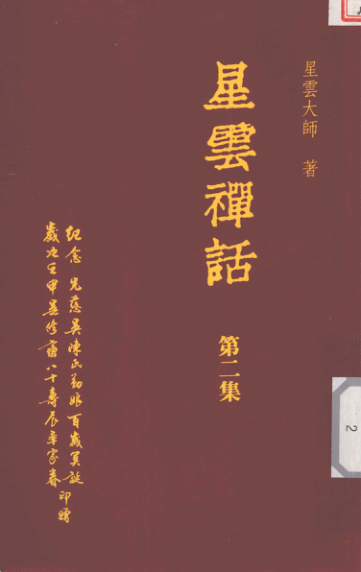 星雲大師 著
星雲禪話
第二集
紀念 先慈吳陳氏勤娘百歲冥誕
歲次壬申吳修齋八十壽辰率家眷印贈
2